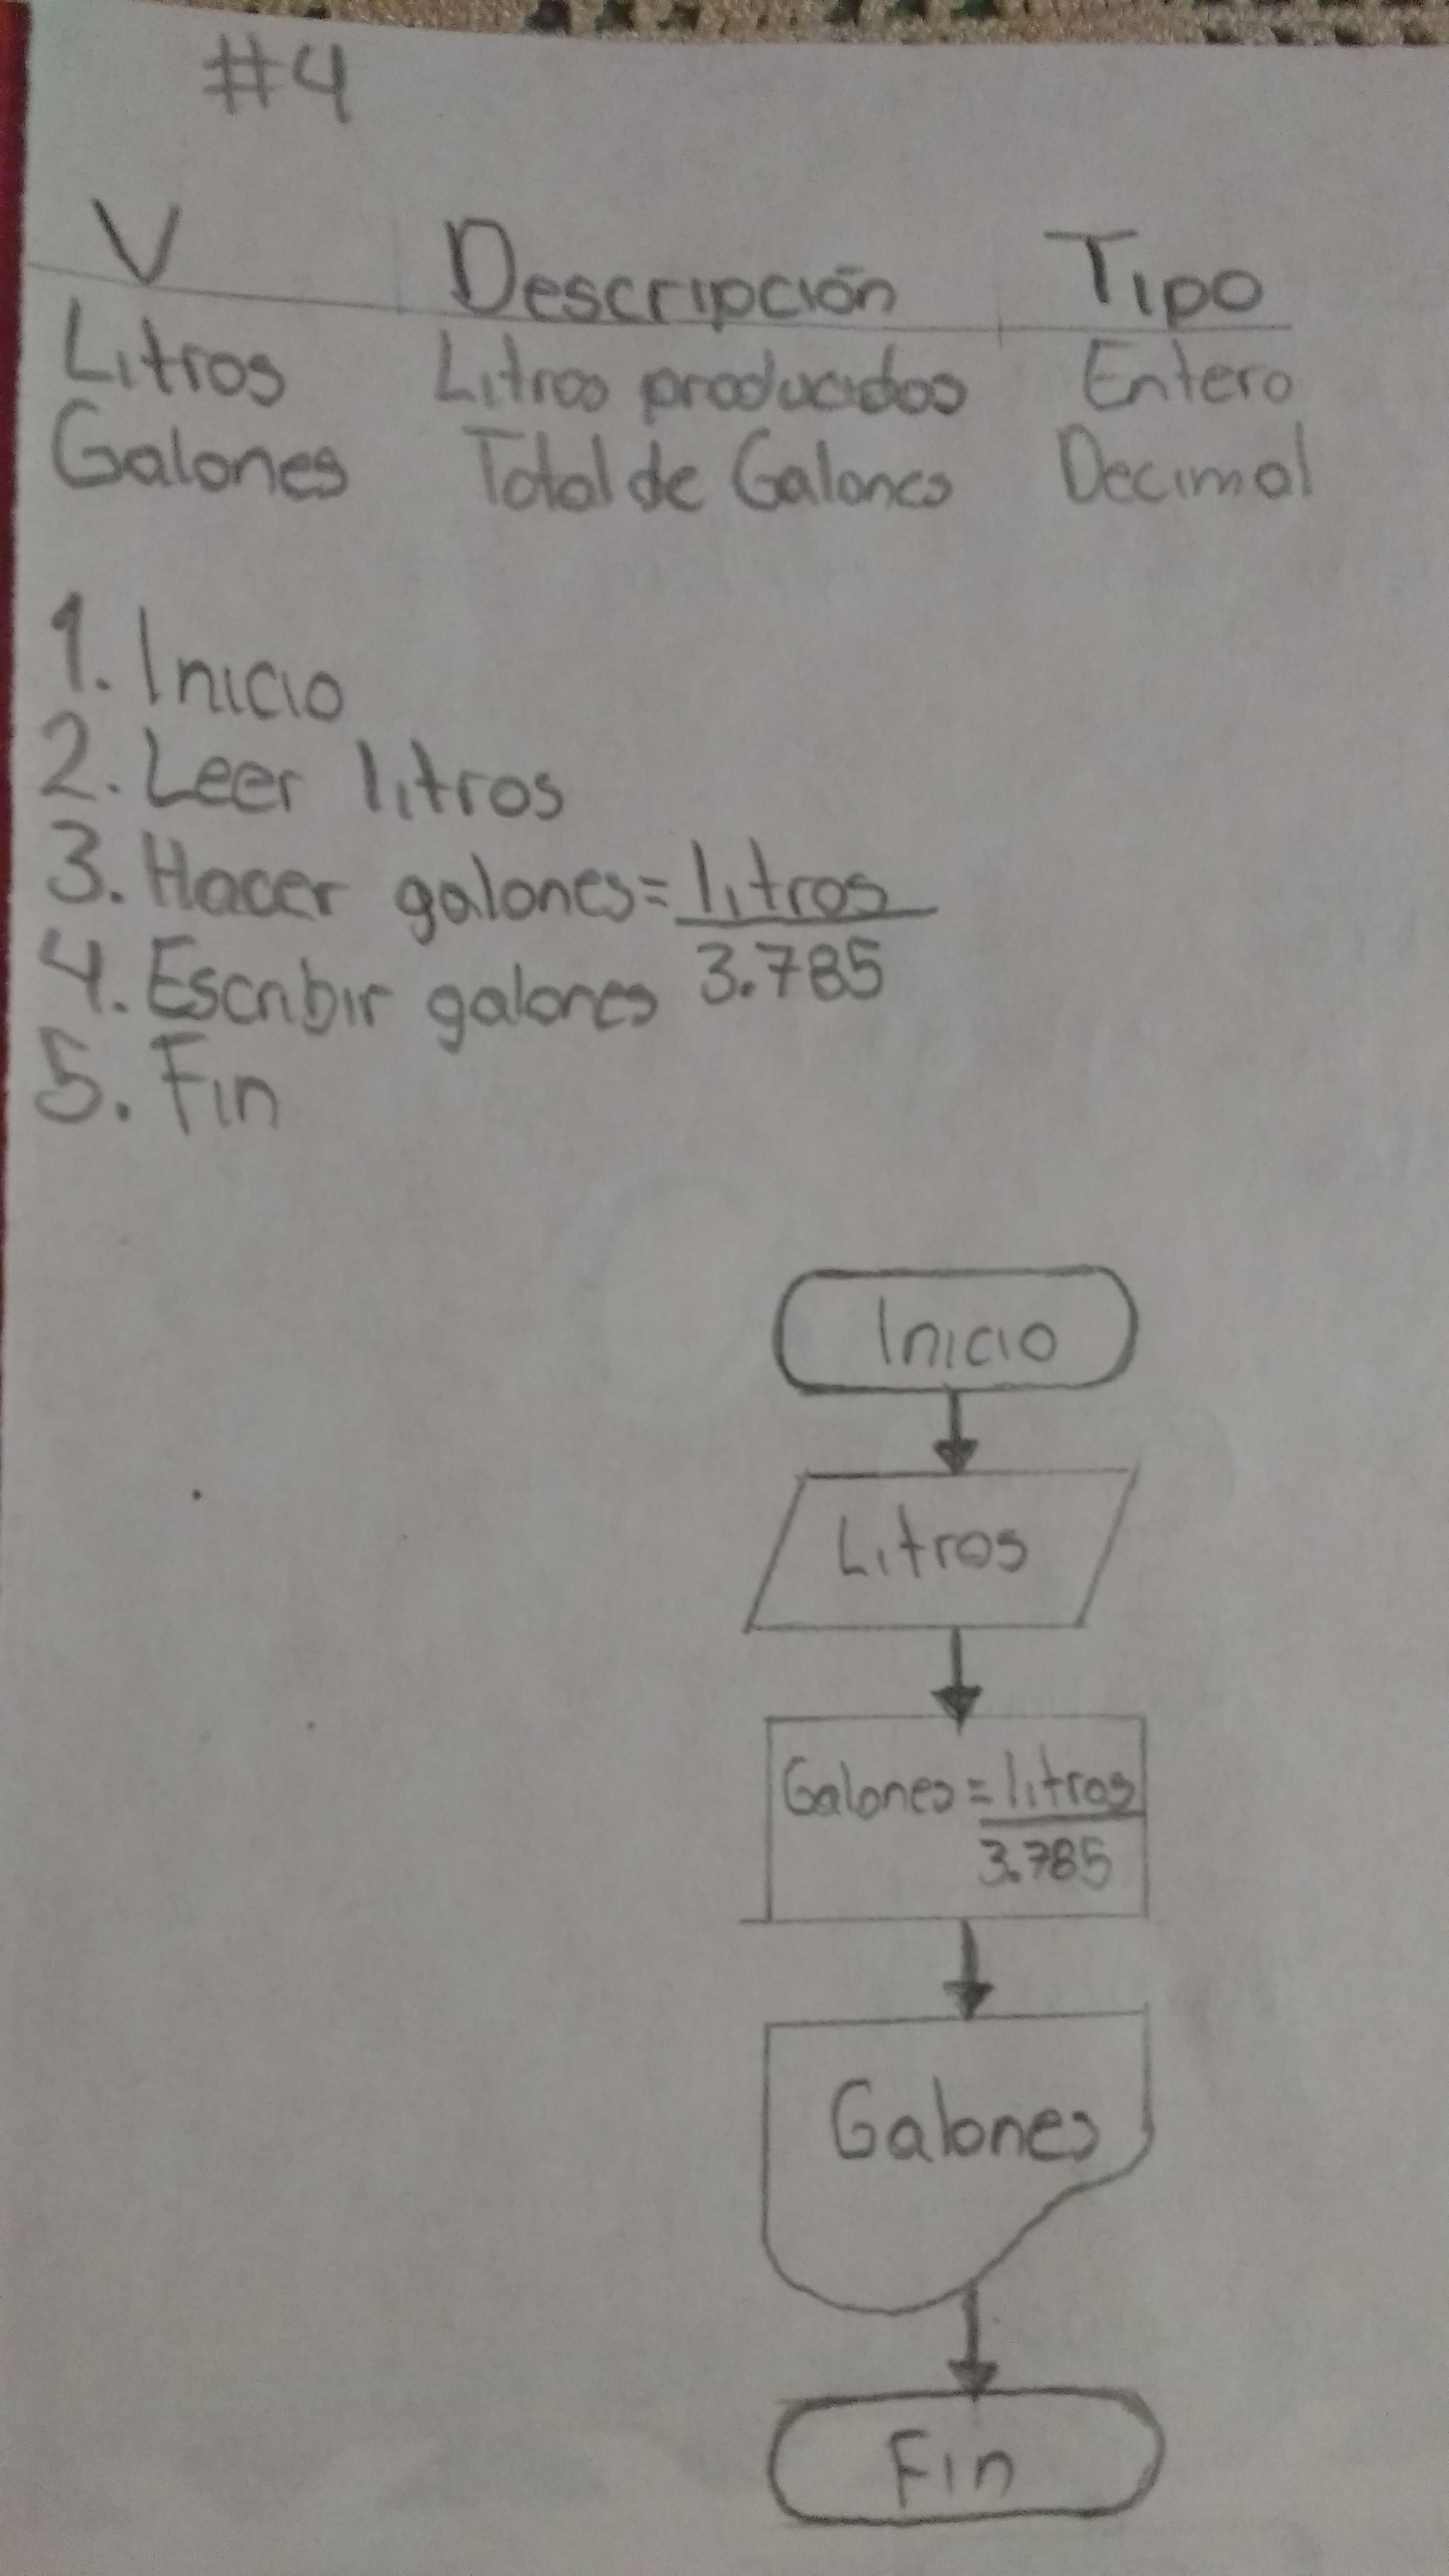 #4
V Descripción Tipo
Litros Litros producidos Entero
Galones Total de Galones Decimal
1. Inicio
2. Leer litros
3. Hacer galones = litros
3.785
4. Escribir galones
5. Fin
Inicio
Litros
Galones = litros
3.785
Galones
Fin